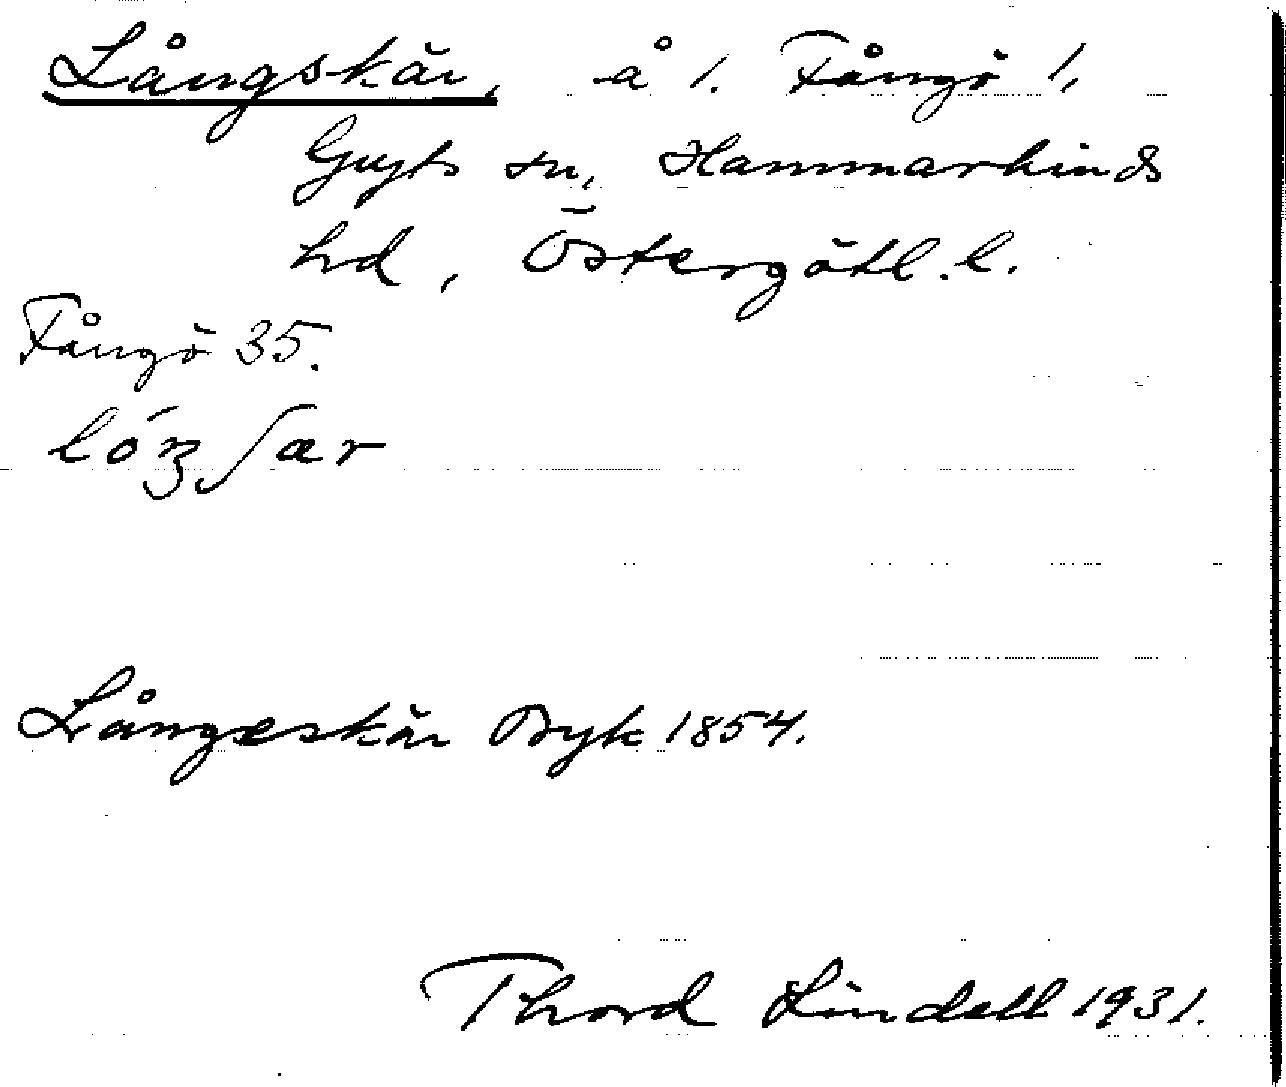 Långskär, å 1. Fångö 1,
Gryts sn, Hammarkinds
hd, Östergötl. l.
Fångö 35.
Långeskär Byk 1854.
Thord Lindell 1931.